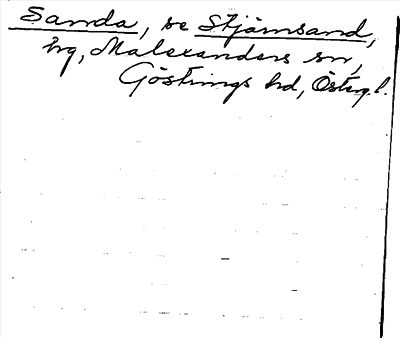 Sanda, se Stjärnsand,
hg, Malexanders sn,
Göstrings hd, Östg.l.